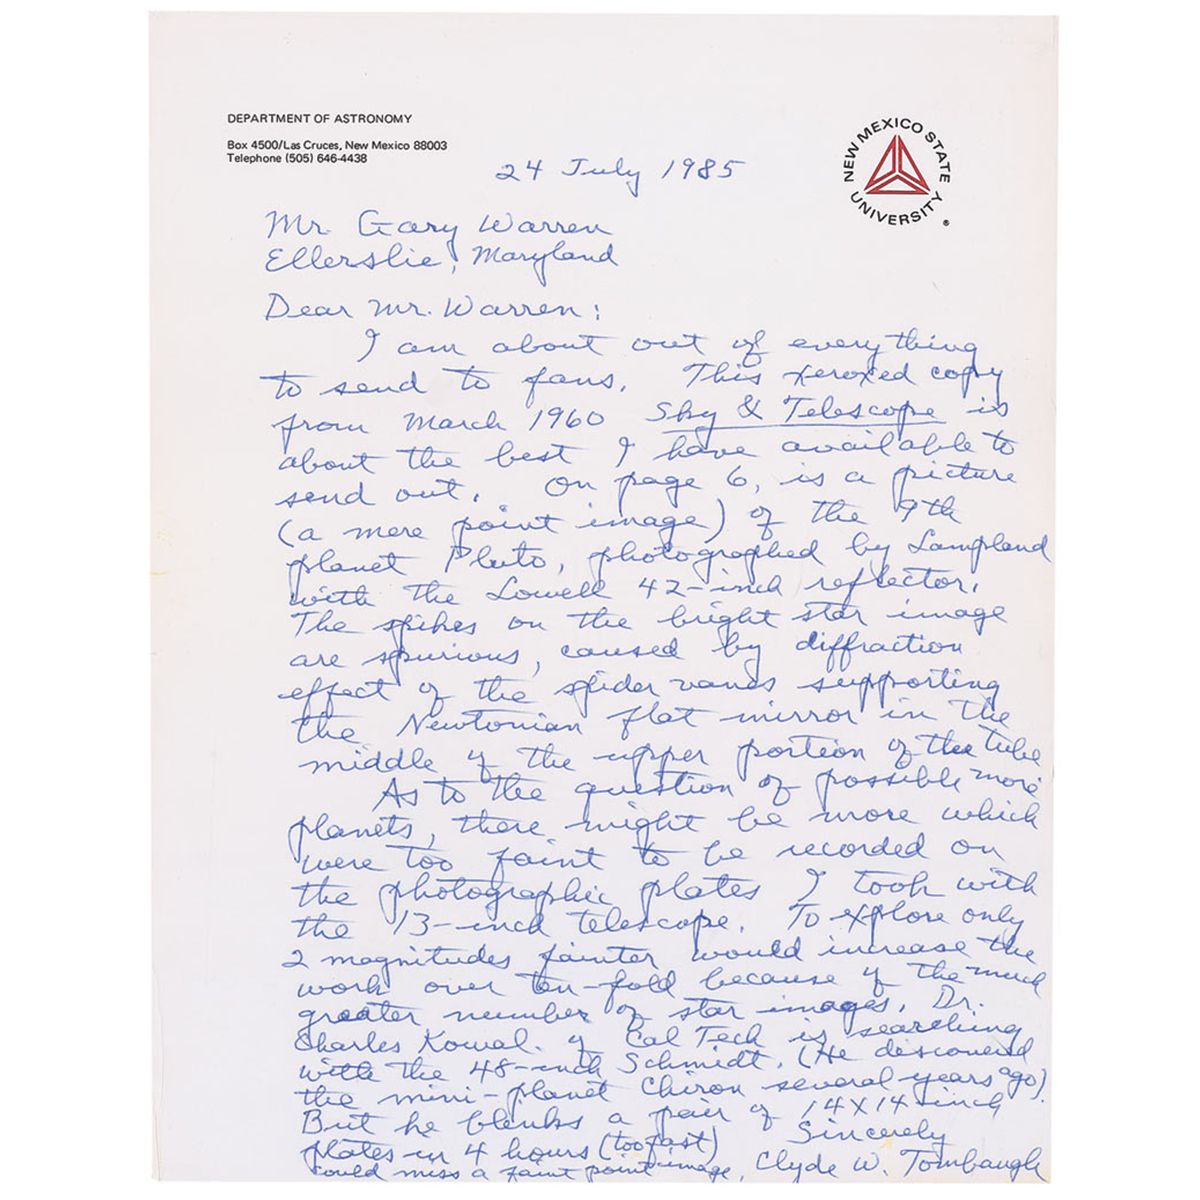 DEPARTMENT OF ASTRONOMY
Box 4500/Las Cruces, New Mexico 88003
Telephone (505) 646-4438
NEW MEXICO STATE UNIVERSITY ®
24 July 1985
Mr. Gary Warren
Ellerslie, Maryland
Dear Mr. Warren:
I am about out of everything
to send to fans. This xeroxed copy
from March 1960 Sky & Telescope is
about the best I have available to
send out. On page 6, is a picture
(a mere point image) of the 9th
planet Pluto, photographed by Lampland
with the Lowell 42-inch reflector.
The spikes on the bright star image
are spurious, caused by diffraction
effect of the spider vanes supporting
the Newtonian flat mirror in the
middle of the upper portion of the tube
As to the question of possible more
planets, there might be more which
were too faint to be recorded on
the photographic plates I took with
the 13-inch telescope. To explore only
2 magnitudes fainter would increase the
work over ten-fold because of the much
greater number of star images. Dr.
Charles Kowal of Cal Tech is searching
with the 48-inch Schmidt. (He discovered
the mini-planet Chiron several years ago).
But he blinks a pair of 14X14-inch
plates in 4 hours (too fast)
could miss a faint point image.
Sincerely
Clyde W. Tombaugh